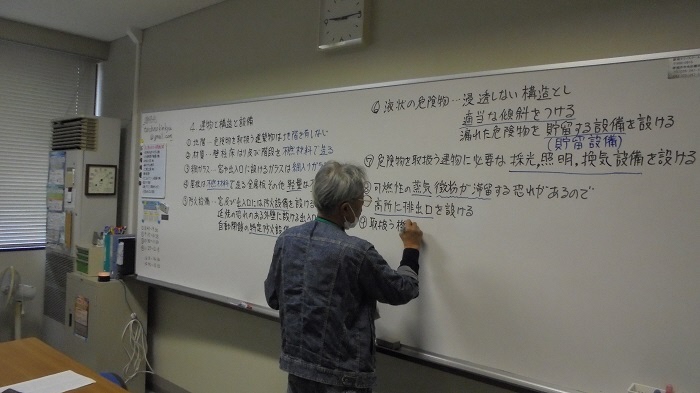 2. 建物と構造と設備
① 地階…危険物を取扱う建築物は地階を有しない
② 材質…壁 柱 床 はり 及び 階段を不燃材料で造る
③ 網ガラス…窓や出入口に設けるガラスは
④ 屋根は不燃材料で造る 金属板 その他 軽量な
⑤ 防火設備…窓及び出入口には防火設備を設ける
延焼の恐れのある外壁に設ける出入口
自動閉鎖の特定防火設備
⑥ 液状の危険物…浸透しない構造とし
適当な傾斜をつける
漏れた危険物を 貯留する設備を設ける
(貯留設備)
⑦ 危険物を取扱う建物に必要な 採光,照明,換気設備を設ける
可燃性の蒸気 微粉が滞留する恐れがあるので
高所に排出口を設ける
⑨ 取扱う